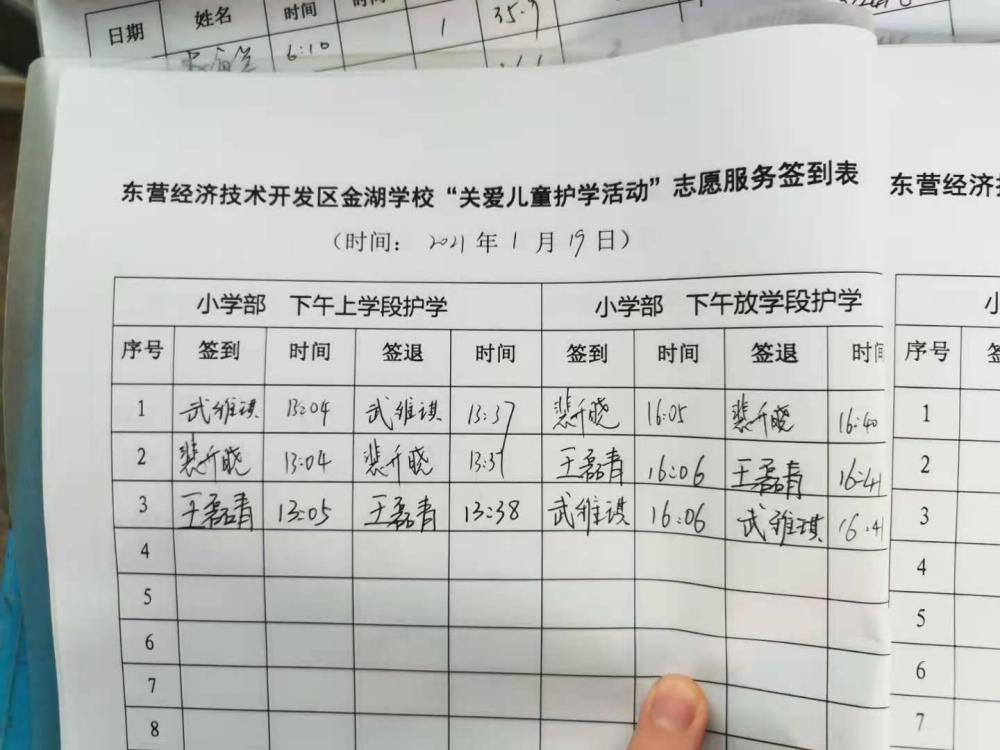 日期 姓名 时间 1 35.9
6:10
东营经济技术开发区金湖学校“关爱儿童护学活动”志愿服务签到表 东营经济
（时间： 2021 年 1 月 19 日）
小学部 下午上学段护学 小学部 下午放学段护学
序号 签到 时间 签退 时间 签到 时间 签退 时间 序号
1 武维琪 13:04 武维琪 13:37 裴升晓 16:05 裴升晓 16:40 1
2 裴升晓 13:04 裴升晓 13:37 王磊青 16:06 王磊青 16:41 2
3 王磊青 13:05 王磊青 13:38 武维琪 16:06 武维琪 16:41 3
4 4
5 5
6 6
7 7
8